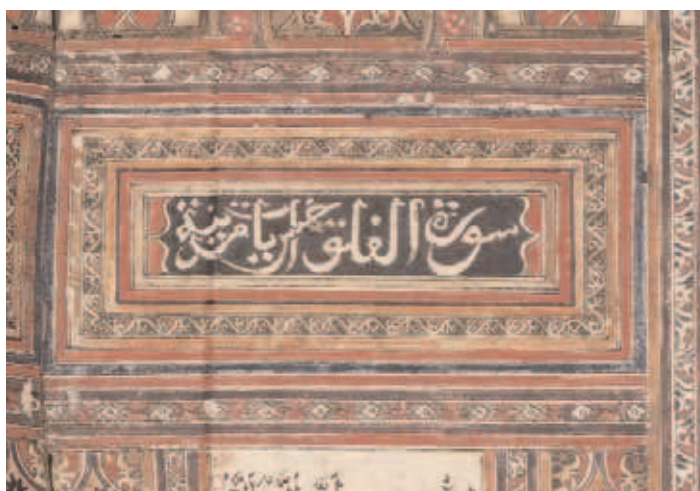 سورة الفلق خمس ايات مدنية